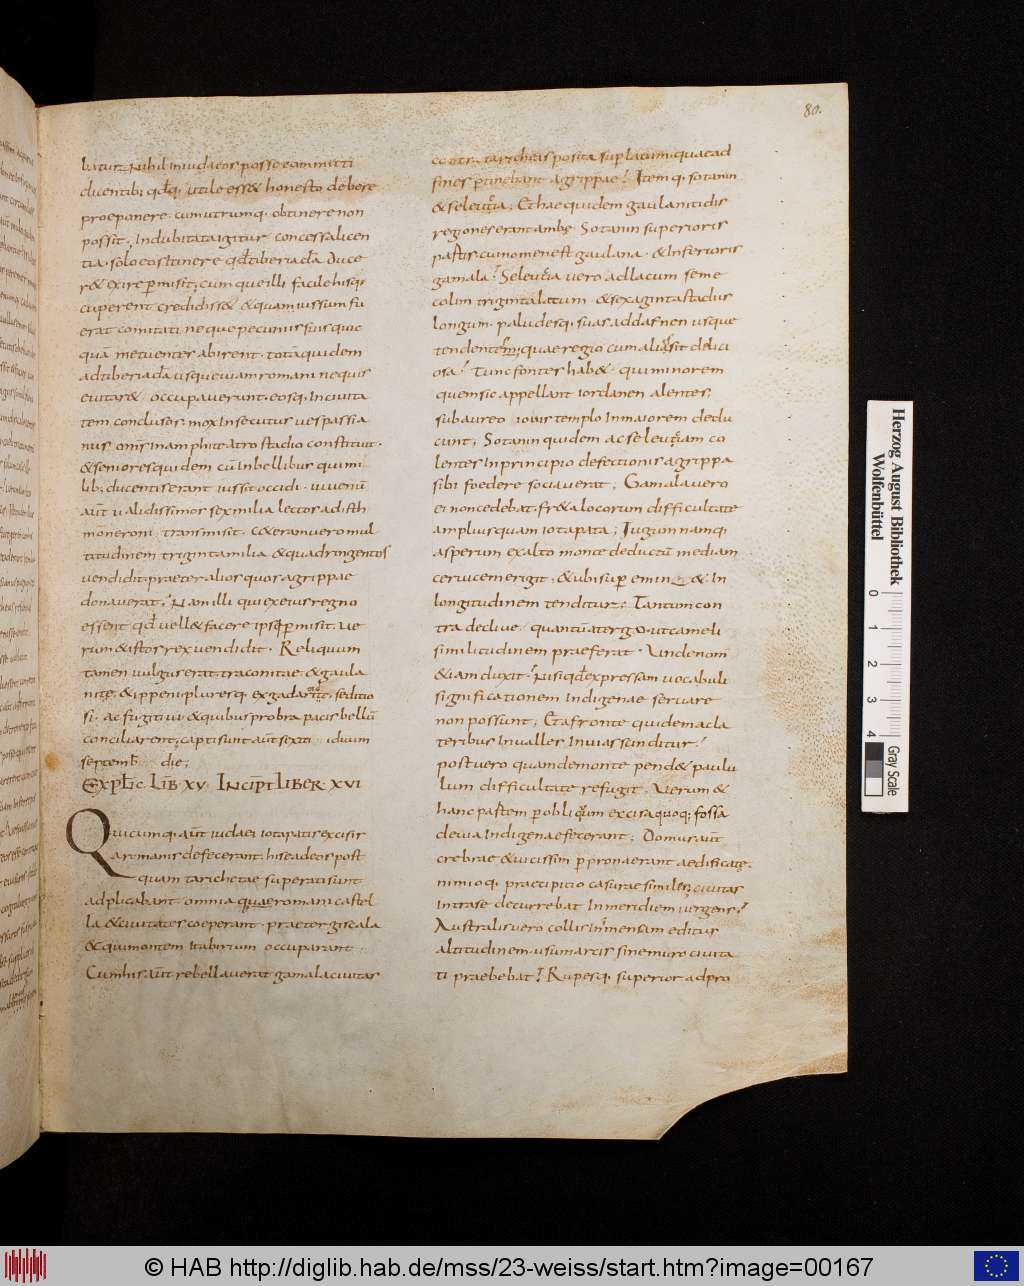 80.
batur. Nihil iniudaeos posse committi
dicentib; qd̄q; utile ess& honesto debere
proeponere. cum utrumq. obtinere non
possit. Indubitata igitur concessa licen
tia. solo eos Itinere qđ tiberiađa duce
r& exire p̄misit; cum que illi facile hisq;
cuperent crediđiss& & quam iussum fu
erat comitati neque pecuniis suis quic
quā metuenter abirent. totā quidem
ad tiberiađa usque uiam romani nequis
euitar& occupauerunt. eosq. In ciuita
tem conclusos. mox Insecutus uespassia
nus om̄s In amphiteatro stadio constituit.
& seniores quidem cū Inbellibus qui mi
lib; ducenti erant iussit occidi. iuuenū
aūt ualidissimor sex milia lector ad isth
mōneroni transmisit. c&eram uero mul
titudinem triginta milia & quadringentos
uendidit. praeter alios quos agrippae
donauerat. Nam illi qui ex eius regno
essent qđ uell& facere ipsi p̄misit. Ue
rum & istos rex uendidit. Reliquum
tamen uulgus erat. traconitae. & gaula
nitę. & ippeni. plures q. ex gadaritę. seditio
si. ac fugitiui. & quibus probra pacis bellū
conciliarent; capti sunt aūt sexti iduum
septemƀ die;
Expłc. Liƀ XV. Incip̄t liber XVI
Quicumq. aūt iudaei iotapatis excisis
a romanis defecerant. hi se ad eos post
quam taricheae superati sunt
adplicabant. omnia quae romani castel
la & ciuitates coeperant. praeter giscala
& qui montem Itabirium occuparant.
Cum his aūt rebellauerat gamala ciuitas
contra taricheas posita sup lacum. quae ad
fines p̄tinebant agrippae. Item q. sotanin
& seleucia; Et hae quidem gaulanitidis
regiones erant ambę. Sotanin superioris
partis. cui nomen est gaulana. & Inferioris
gamala. Seleucia uero ad lacum seme
colin triginta latum & sexaginta stadiis
longum. paludesq. suas ad dafnen usque
tendentem; quae regio cum alias sit delici
osa. Tunc fontes hab&. qui minorem
quem sic appellant iordanen alentes;
sub aureo iouis templo In maiorem dedu
cunt; Sotanin quidem ac seleuciam co
lentes In principio defectionis agrippa
sibi foedere sociauerat; Gamala uero
ei non cedebat. fr&a locorum difficultate
amplius quam iotapata; Iugum namq;
asperum ex alto monte deductū mediam
ceruicem erigit. & ubi sup̄ eminet & In
longitudinem tenditur; Tantum con
tra decliue quantū a tergo. ut cameli
similitudinem praeferat. Unde nom̄
& iam duxit. Nisi qđ expressam uocabuli
significationem Indigenae seruare
non possunt; Et a fronte quidem ac la
teribus In ualles Inuias scinditur.
post uero quam de monte pend& paulu
lum difficultate refugit. Uerum &
hanc partem p̄ obliquum excisa quoq; fossa
deuia Indigenae fecerant; Domus aūt
crebrae & uicissim p̄ prona erant aedificatę.
nimioq. praecipitio casurae similes; ciuitas
In tr a se decurrebat In meridiem uergens.
Australis uero collis In mensam editus
altitudinem usum arcis sine muro ciuita
ti praebebat. Rupesq. superior ad pro
Herzog August Bibliothek
Wolfenbüttel
0 1 2 3 4
Gray Scale
© HAB http://diglib.hab.de/mss/23-weiss/start.htm?image=00167